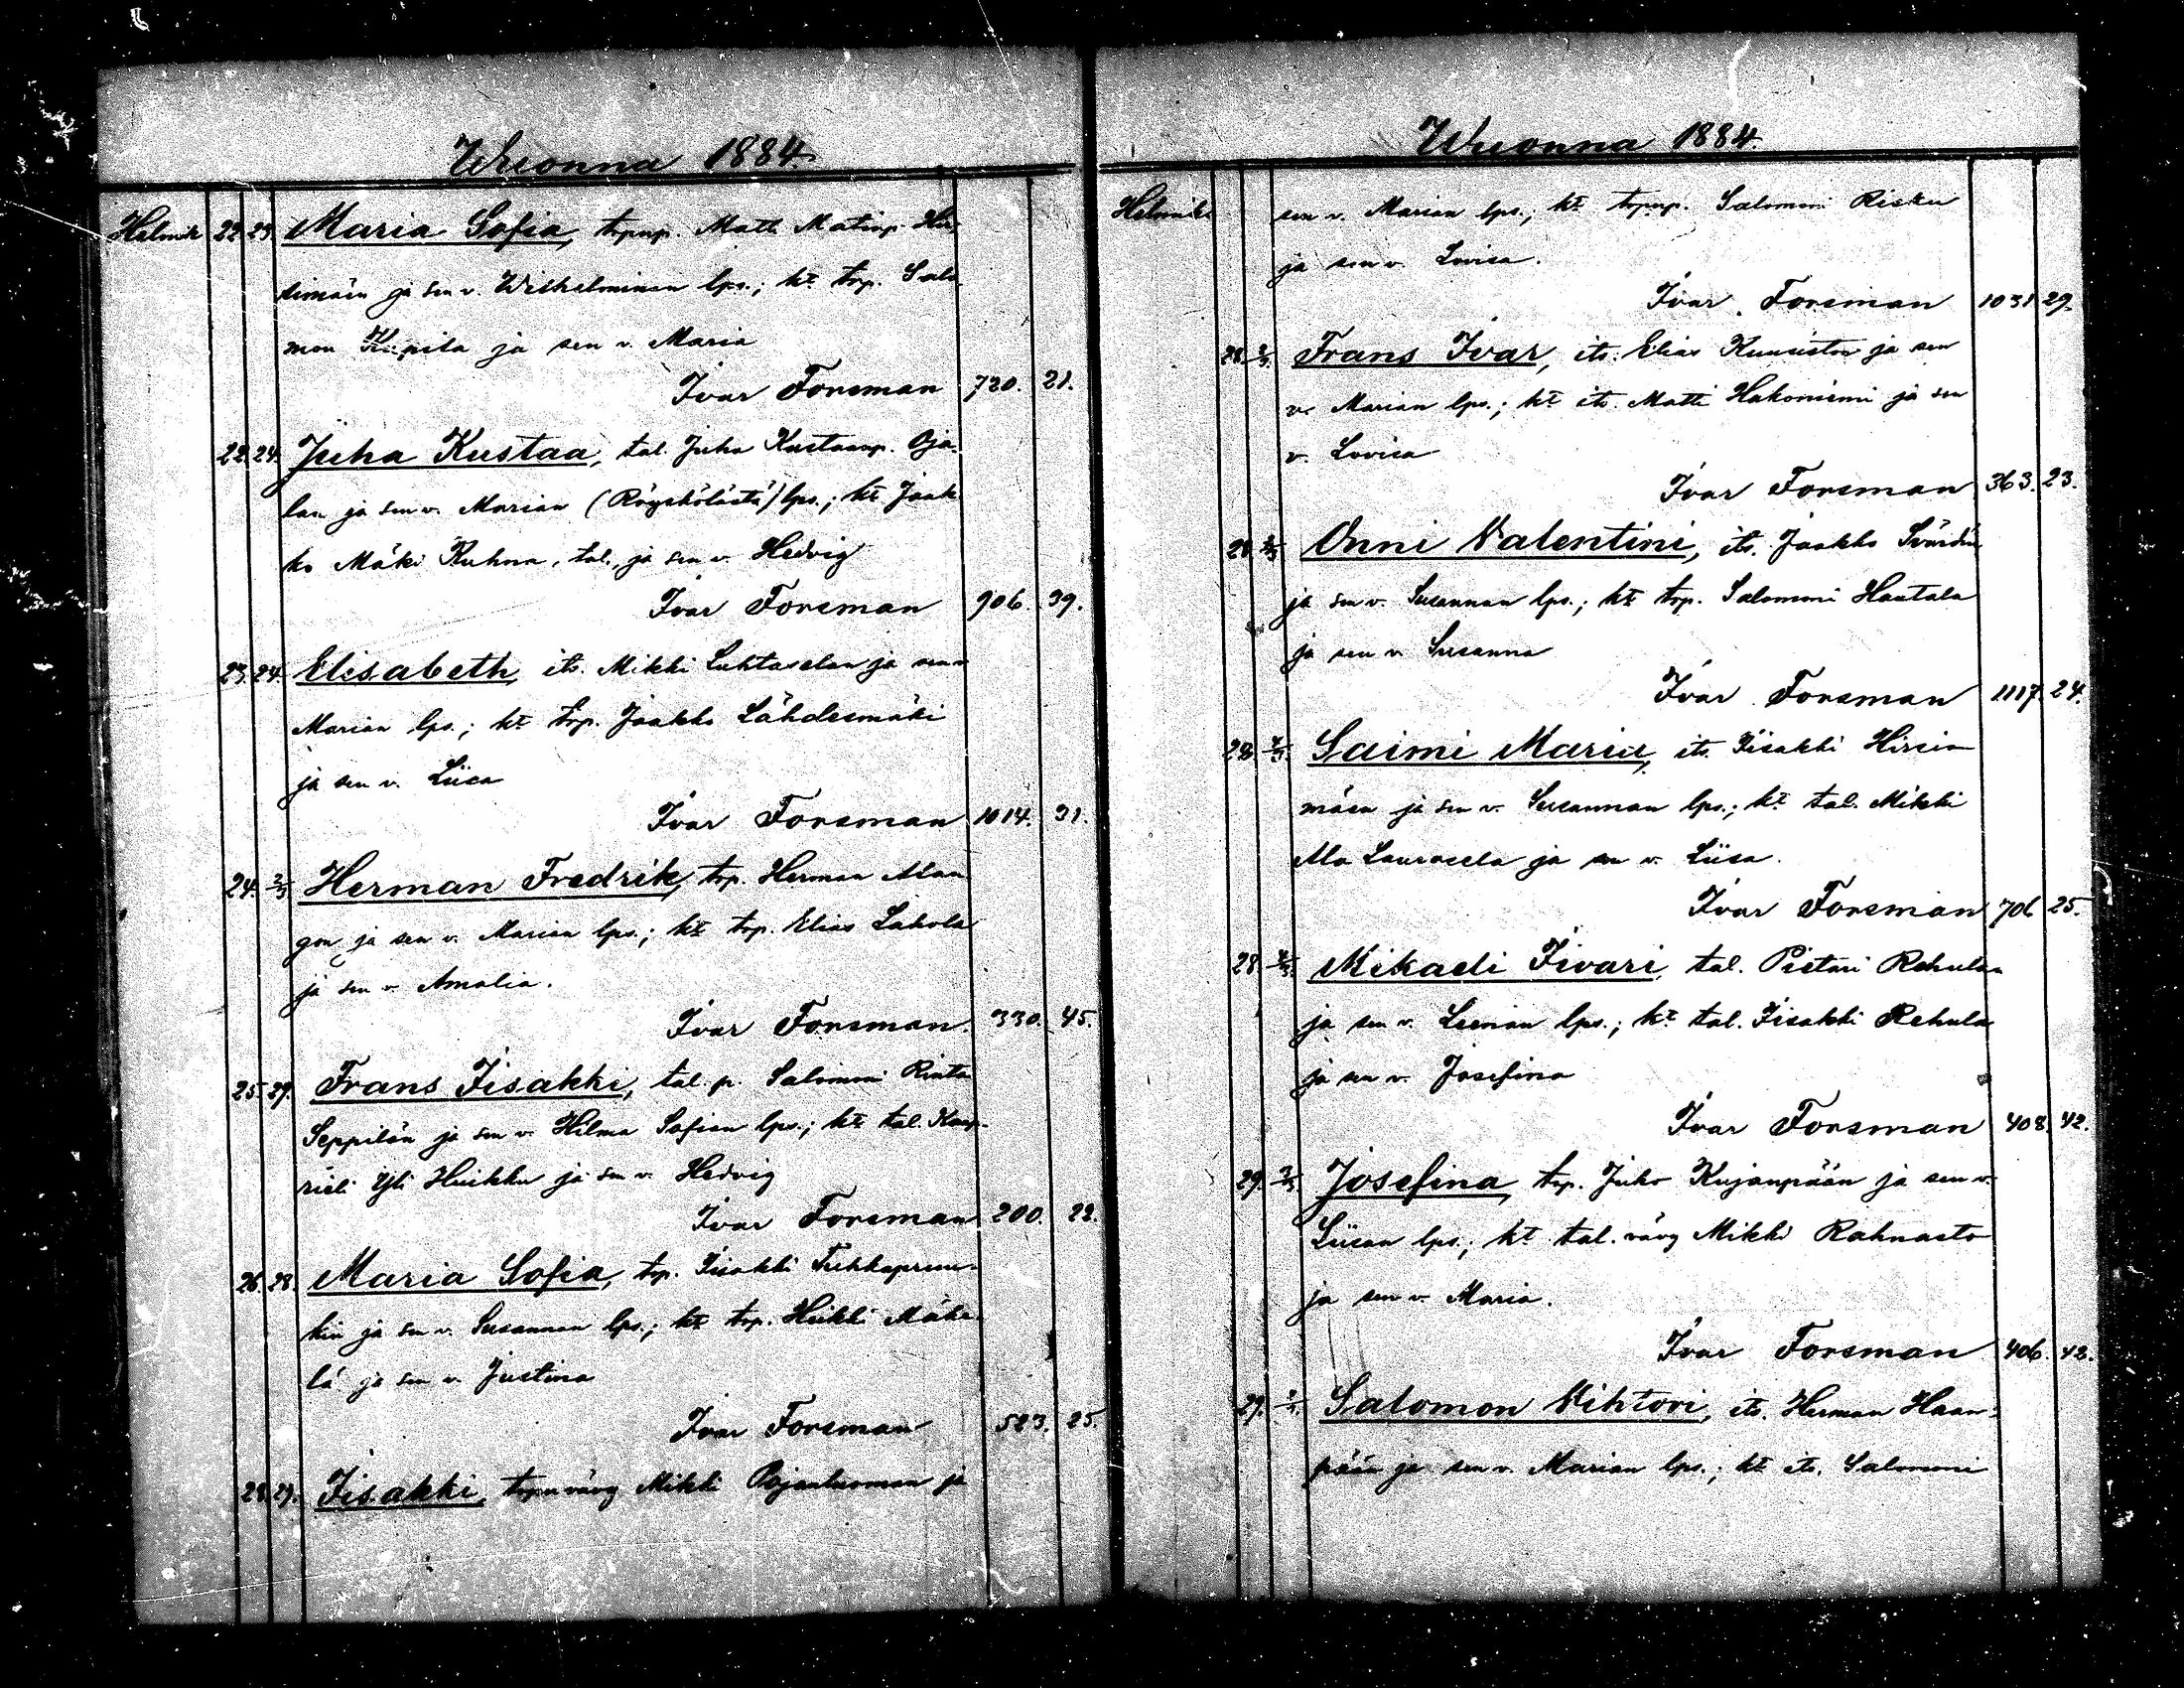 Wuonna 1884.
Helmik. 22. 23. Maria Sofia, trpnp. Matti Matinp. Hir-
simäen ja sen v. Wilhelminan lps.; kt trp. Salo-
mon Kiipila ja sen v. Maria
Ivar Forsman 720. 21.
22. 24. Juha Kustaa, tal. Juha Kustaanp. Oja-
lan ja sen v. Marian (Röyskölästä) lps.; kt Jaak-
ko Mäki Ruhna, tal., ja sen v. Hedvig
Ivar Forsman 906. 39.
23. 24. Elisabeth, its. Mikki Luhtaselan ja sen v.
Marian lps.; kt trp. Jaakko Lähdesmäki
ja sen v. Liisa
Ivar Forsman 1014. 31.
24. 2/3 Herman Fredrik, trp. Herman Alan-
gon ja sen v. Marian lps.; kt trp. Elias Lahola
ja sen v. Amalia.
Ivar Forsman. 330. 45.
25. 29. Frans Iisakki, tal. p. Salomoni Rinta
Seppilän ja sen v. Hilma Sofian lps.; kt tal. Kaap-
rieli Yli Huikku ja sen v. Hedvig
Ivar Forsman 200. 22.
26. 28. Maria Sofia, trp. Iisakki Tuhkapruu-
kin ja sen v. Susannan lps.; kt trp. Heikki Mäke-
lä ja sen v. Justina
Ivar Forsman 523. 25.
28. 29. Iisakki, trpnvävy Mikki Pojanluoman ja
Wuonna 1884.
Helmik. sen v. Marian lps.; kt trpnp. Salomoni Risku
ja sen v. Lovisa.
Ivar Forsman 1031 29.
28. 2/3. Frans Ivar, its. Elias Kuusiston ja sen
v. Marian lps.; kt its. Matti Hakoniemi ja sen
v. Lovisa
Ivar Forsman 363. 23.
28. 2/3 Onni Valentini, its. Jaakko Svärdin
ja sen v. Susannan lps.; kt trp. Salomoni Hautala
ja sen v. Susanna
Ivar Forsman 1117. 24.
28. Saimi Maria, its. Iisakki Hirsi-
mäen ja sen v. Susannan lps.; kt tal. Mikki
Ala Laurosela ja sen v. Liisa.
Ivar Forsman 706 25.
28. Mikaeli Iivari, tal. Pietari Rehulan
ja sen v. Leenan lps.; kt tal. Iisakki Rehula
ja sen v. Josefina
Ivar Forsman 408. 42.
29. Josefina, trp. Juho Kujanpään ja sen v.
Liisan lps.; kt tal. vävy Mikki Rahnasto
ja sen v. Maria.
Ivar Forsman 406. 43.
29. Salomon Vihtori, its. Herman Haan-
pään ja sen v. Marian lps.; kt its. Salomoni